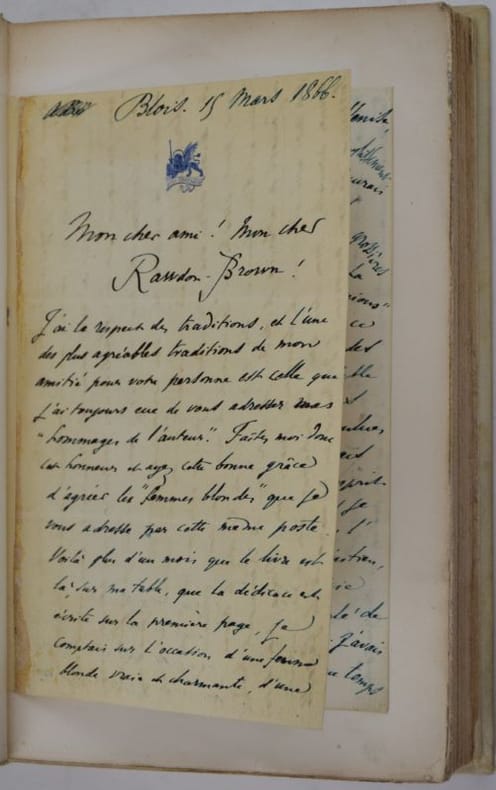 Blois. 15 Mars 1866.
Mon cher ami! Mon cher
Rawdon-Brown!
J'ai le respect des traditions, et l'une
des plus agréables traditions de mon
amitié pour votre personne est celle que
j'ai toujours eue de vous adresser mes
"hommages de l'auteur". Faites moi donc
cet honneur et ayez cette bonne grâce
d'agréer les "Femmes blondes" que je
vous adresse par cette même poste.
Voilà plus d'un mois que le livre est
là, sur ma table, que la dédicace est
écrite sur la première page, je
comptais sur l'occasion d'une femme
blonde vraie et charmante, d'une
Venise,
grossières
la
ce
des
j'avais
temps